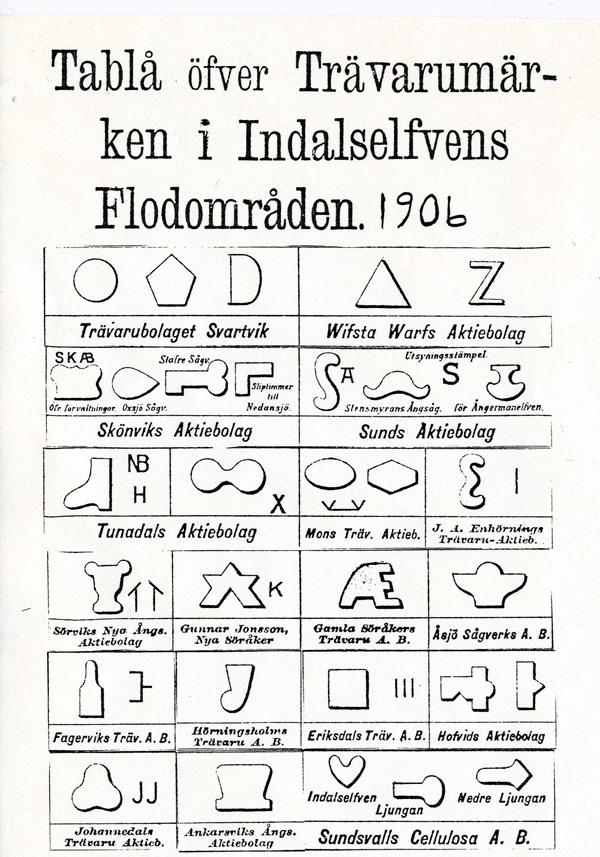 Tablå öfver Trävarumär-
ken i Indalselfvens
Flodområden. 1906
Trävarubolaget Svartvik
Wifsta Warfs Aktiebolag
SKÆB
Stafre Sågv.
Sliptimmer
till
Nedansjö.
Öfr förvaltningar. Oxsjö Sågv.
Skönviks Aktiebolag
Utsyningsstämpel.
A
S
Stensmyrans Ångsåg. för Ångermanelfven.
Sunds Aktiebolag
NB
H
X
Tunadals Aktiebolag
Mons Träv. Aktieb.
J. A. Enhörnings
Trävaru-Aktieb.
Sörviks Nya Ångs.
Aktiebolag
K
Gunnar Jonsson,
Nya Söråker
Gamla Söråkers
Trävaru A. B.
Åsjö Sågverks A. B.
Fagerviks Träv. A. B.
Hörningsholms
Trävaru A. B.
Eriksdals Träv. A. B.
Hofvids Aktiebolag
JJ
Johannedals
Trävaru Aktieb.
Ankarsviks Ångs.
Aktiebolag
Indalselfven
Ljungan
Nedre Ljungan
Sundsvalls Cellulosa A. B.